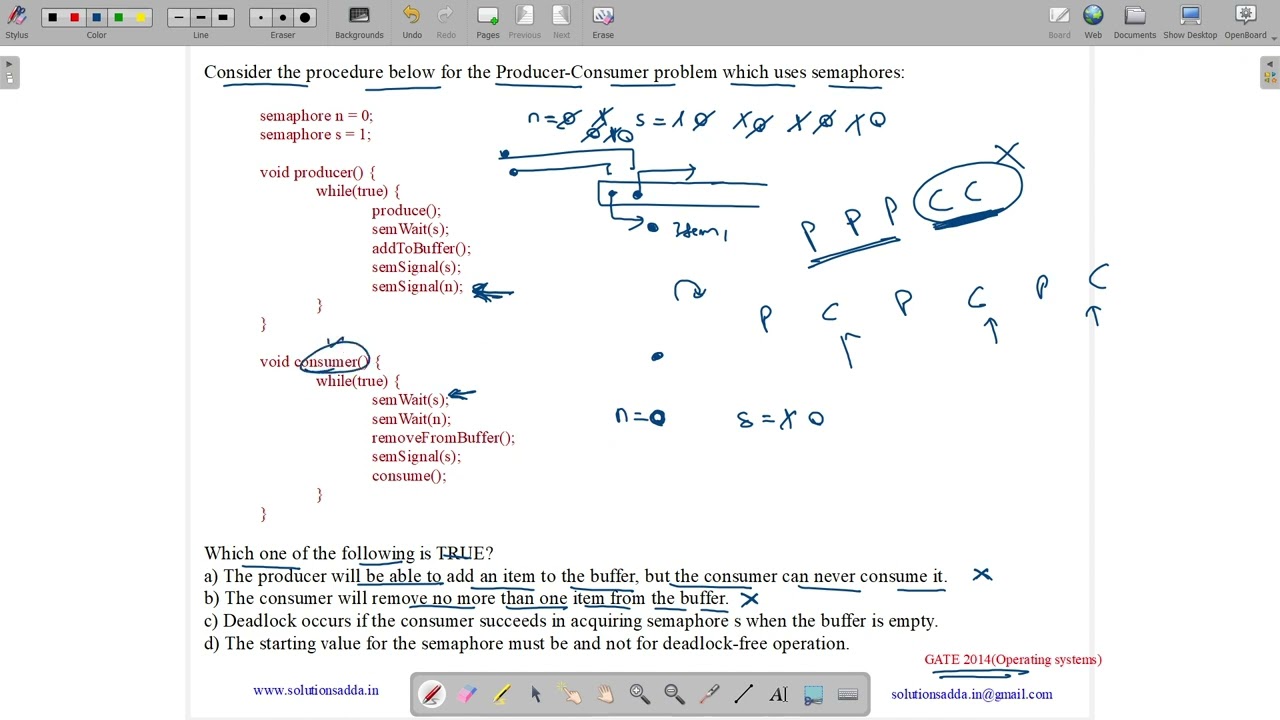 Stylus Color Line Eraser Backgrounds Undo Redo Pages Previous Next Erase Board Web Documents Show Desktop OpenBoard
Consider the procedure below for the Producer-Consumer problem which uses semaphores:
semaphore n = 0;
semaphore s = 1;
void producer() {
while(true) {
produce();
semWait(s);
addToBuffer();
semSignal(s);
semSignal(n);
}
}
void consumer() {
while(true) {
semWait(s);
semWait(n);
removeFromBuffer();
semSignal(s);
consume();
}
}
n=0 1 s=1 0 1 0 1 0 1 0
0 1 0
Item 1
P P P C C
P C P C P C
n=0 s=1 0
Which one of the following is TRUE?
a) The producer will be able to add an item to the buffer, but the consumer can never consume it. X
b) The consumer will remove no more than one item from the buffer. X
c) Deadlock occurs if the consumer succeeds in acquiring semaphore s when the buffer is empty.
d) The starting value for the semaphore must be and not for deadlock-free operation.
GATE 2014(Operating systems)
www.solutionsadda.in
solutionsadda.in@gmail.com